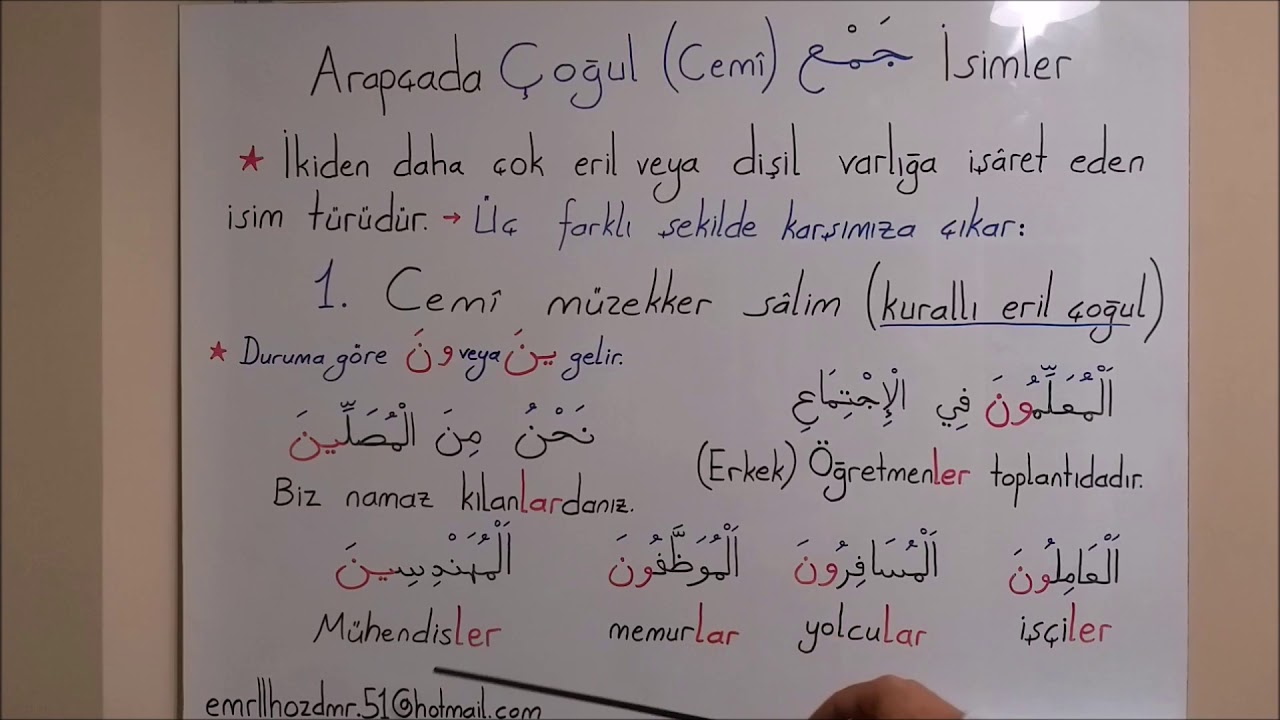 Arapçada Çoğul (Cemî) جَمْع İsimler
★ İkiden daha çok eril veya dişil varlığa işâret eden
isim türüdür. → Üç farklı şekilde karşımıza çıkar:
1. Cemî müzekker sâlim (kurallı eril çoğul)
★ Duruma göre ونَ veya ينَ gelir.
اَلْمُعَلِّمُونَ فِي الْإِجْتِمَاعِ
(Erkek) Öğretmenler toplantıdadır.
نَحْنُ مِنَ الْمُصَلِّينَ
Biz namaz kılanlardanız.
اَلْعَامِلُونَ اَلْمُسَافِرُونَ اَلْمُوَظَّفُونَ اَلْمُهَنْدِسِينَ
işçiler yolcular memurlar Mühendisler
emrllhozdmr.51@hotmail.com